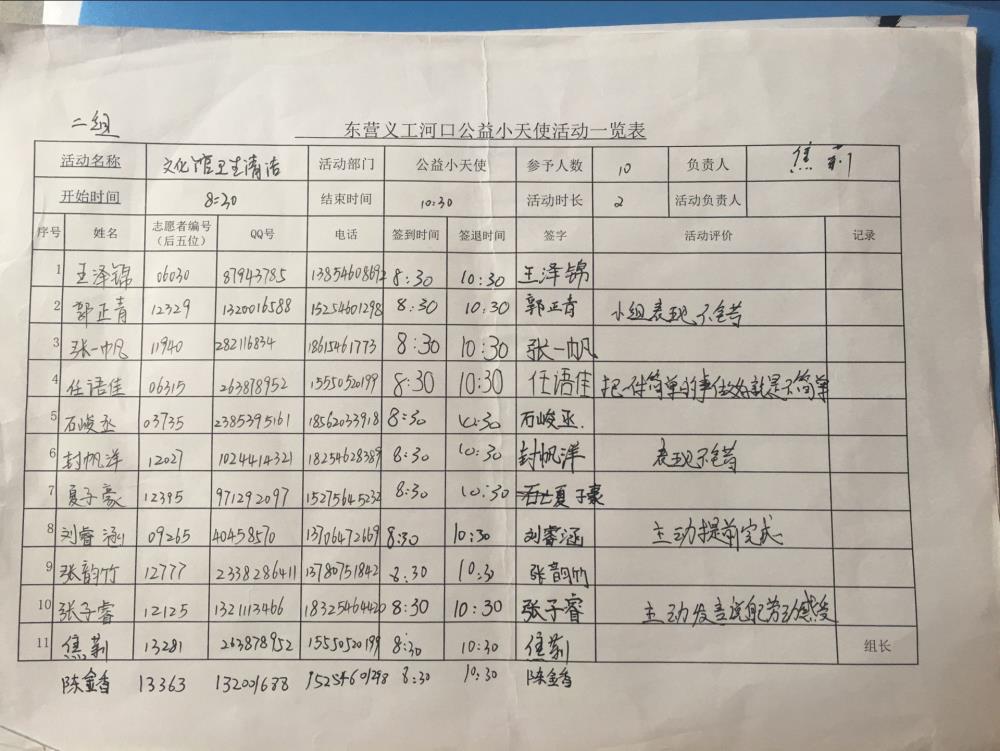 二组
东营义工河口公益小天使活动一览表
活动名称 文化馆卫生清洁 活动部门 公益小天使 参予人数 10 负责人 焦莉
开始时间 8:30 结束时间 10:30 活动时长 2 活动负责人
序号 姓名 志愿者编号（后五位） QQ号 电话 签到时间 签退时间 签字 活动评价 记录
1 王泽锦 06030 87943785 13854608692 8:30 10:30 王泽锦
2 郭正青 12329 1320016588 15254601298 8:30 10:30 郭正青 小组表现不错
3 张一帆 11940 282116834 18615461773 8:30 10:30 张一帆
4 任语佳 06315 263878952 15550520199 8:30 10:30 任语佳 把一件简单的事做好就是不简单
5 石峻丞 03735 2385395161 18562033918 8:30 10:30 石峻丞.
6 封帆洋 12027 1024414321 18254628389 8:30 10:30 封帆洋 表现不错
7 夏子豪 12395 971292097 15275645232 8:30 10:30 夏子豪
8 刘睿涵 09265 40458570 13706472669 8:30 10:30 刘睿涵 主动提前完成
9 张韵竹 12777 2338286411 13780751842 8:30 10:30 张韵竹
10 张子睿 12125 1321113466 18325464420 8:30 10:30 张子睿 主动发言说配劳动感受
11 焦莉 13281 263878952 15550520199 8:30 10:30 焦莉 组长
陈金香 13363 132001688 15254601298 8:30 10:30 陈金香